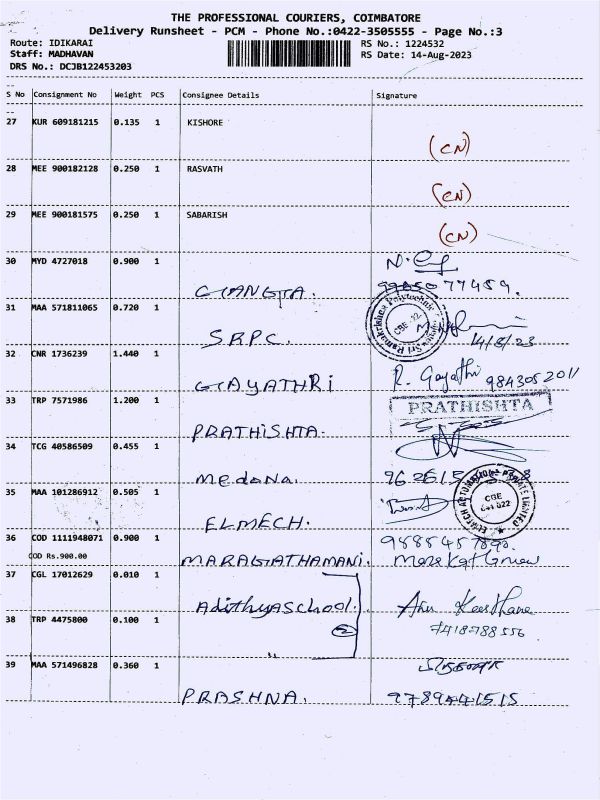 THE PROFESSIONAL COURIERS, COIMBATORE
Delivery Runsheet - PCM - Phone No.:0422-3505555 - Page No.:3
Route: IDIKARAI RS No.: 1224532
Staff: MADHAVAN RS Date: 14-Aug-2023
DRS No.: DCJB122453203
S No Consignment No Weight PCS Consignee Details Signature
27 KUR 609181215 0.135 1 KISHORE
(CN)
28 MEE 900182128 0.250 1 RASVATH
(CN)
29 MEE 900181575 0.250 1 SABARISH
(CN)
30 MYD 4727018 0.900 1
GANGTA.
31 MAA 571811065 0.720 1
SRPC. 14/8/23
32 CNR 1736239 1.440 1
GAYATHRI R. Gayathri 9843052011
33 TRP 7571986 1.200 1 PRATHISHTA
PRATHISHTA.
34 TCG 40586509 0.455 1
Medona.
35 MAA 101286912 0.505 1 CBE
ELMECH.
36 COD 1111948071 0.900 1
COD Rs.900.00 MARAGATHAMANI.
37 CGL 17012629 0.010 1
Adithyaschool.
38 TRP 4475800 0.100 1 2 7418788556
39 MAA 571496828 0.360 1
PRASHNA. 9789441515